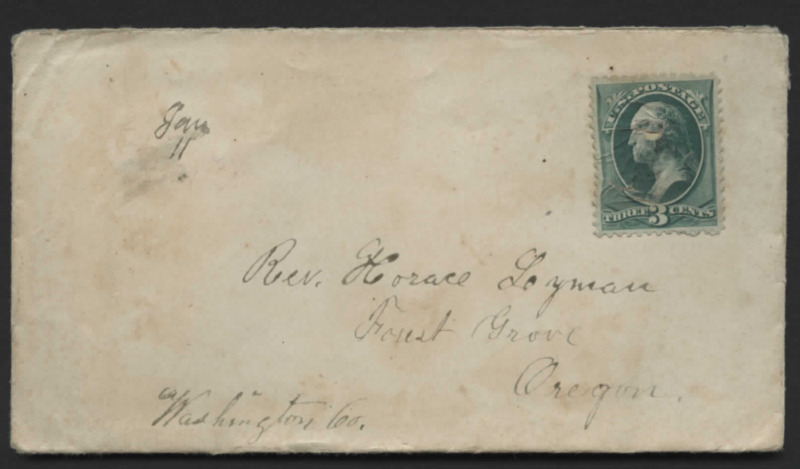 Jan
11
U.S. POSTAGE
THREE 3 CENTS
Rev. Horace Lyman
Forest Grove
Oregon.
Washington Co.